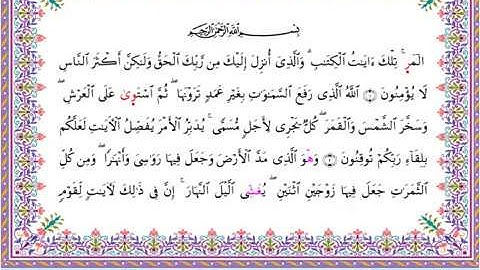 بِسْمِ اللَّهِ الرَّحْمَٰنِ الرَّحِيمِ
الٓمٓرۚ تِلْكَ ءَايَٰتُ الْكِتَٰبِۗ وَالَّذِىٓ أُنزِلَ إِلَيْكَ مِن رَّبِّكَ الْحَقُّ وَلَٰكِنَّ أَكْثَرَ النَّاسِ
لَا يُؤْمِنُونَ ۝١ اللَّهُ الَّذِى رَفَعَ السَّمَٰوَٰتِ بِغَيْرِ عَمَدٍ تَرَوْنَهَاۖ ثُمَّ اسْتَوَىٰ عَلَى الْعَرْشِۖ
وَسَخَّرَ الشَّمْسَ وَالْقَمَرَۖ كُلٌّ يَجْرِى لِأَجَلٍ مُّسَمًّىۚ يُدَبِّرُ الْأَمْرَ يُفَصِّلُ الْآيَٰتِ لَعَلَّكُم
بِلِقَآءِ رَبِّكُمْ تُوقِنُونَ ۝٢ وَهْوَ الَّذِى مَدَّ الْأَرْضَ وَجَعَلَ فِيهَا رَوَٰسِىَ وَأَنْهَٰرًاۖ وَمِن كُلِّ
الثَّمَرَٰتِ جَعَلَ فِيهَا زَوْجَيْنِ اثْنَيْنِۖ يُغَشِّى الَّيْلَ النَّهَارَۚ إِنَّ فِى ذَٰلِكَ لَآيَٰتٍ لِّقَوْمٍ